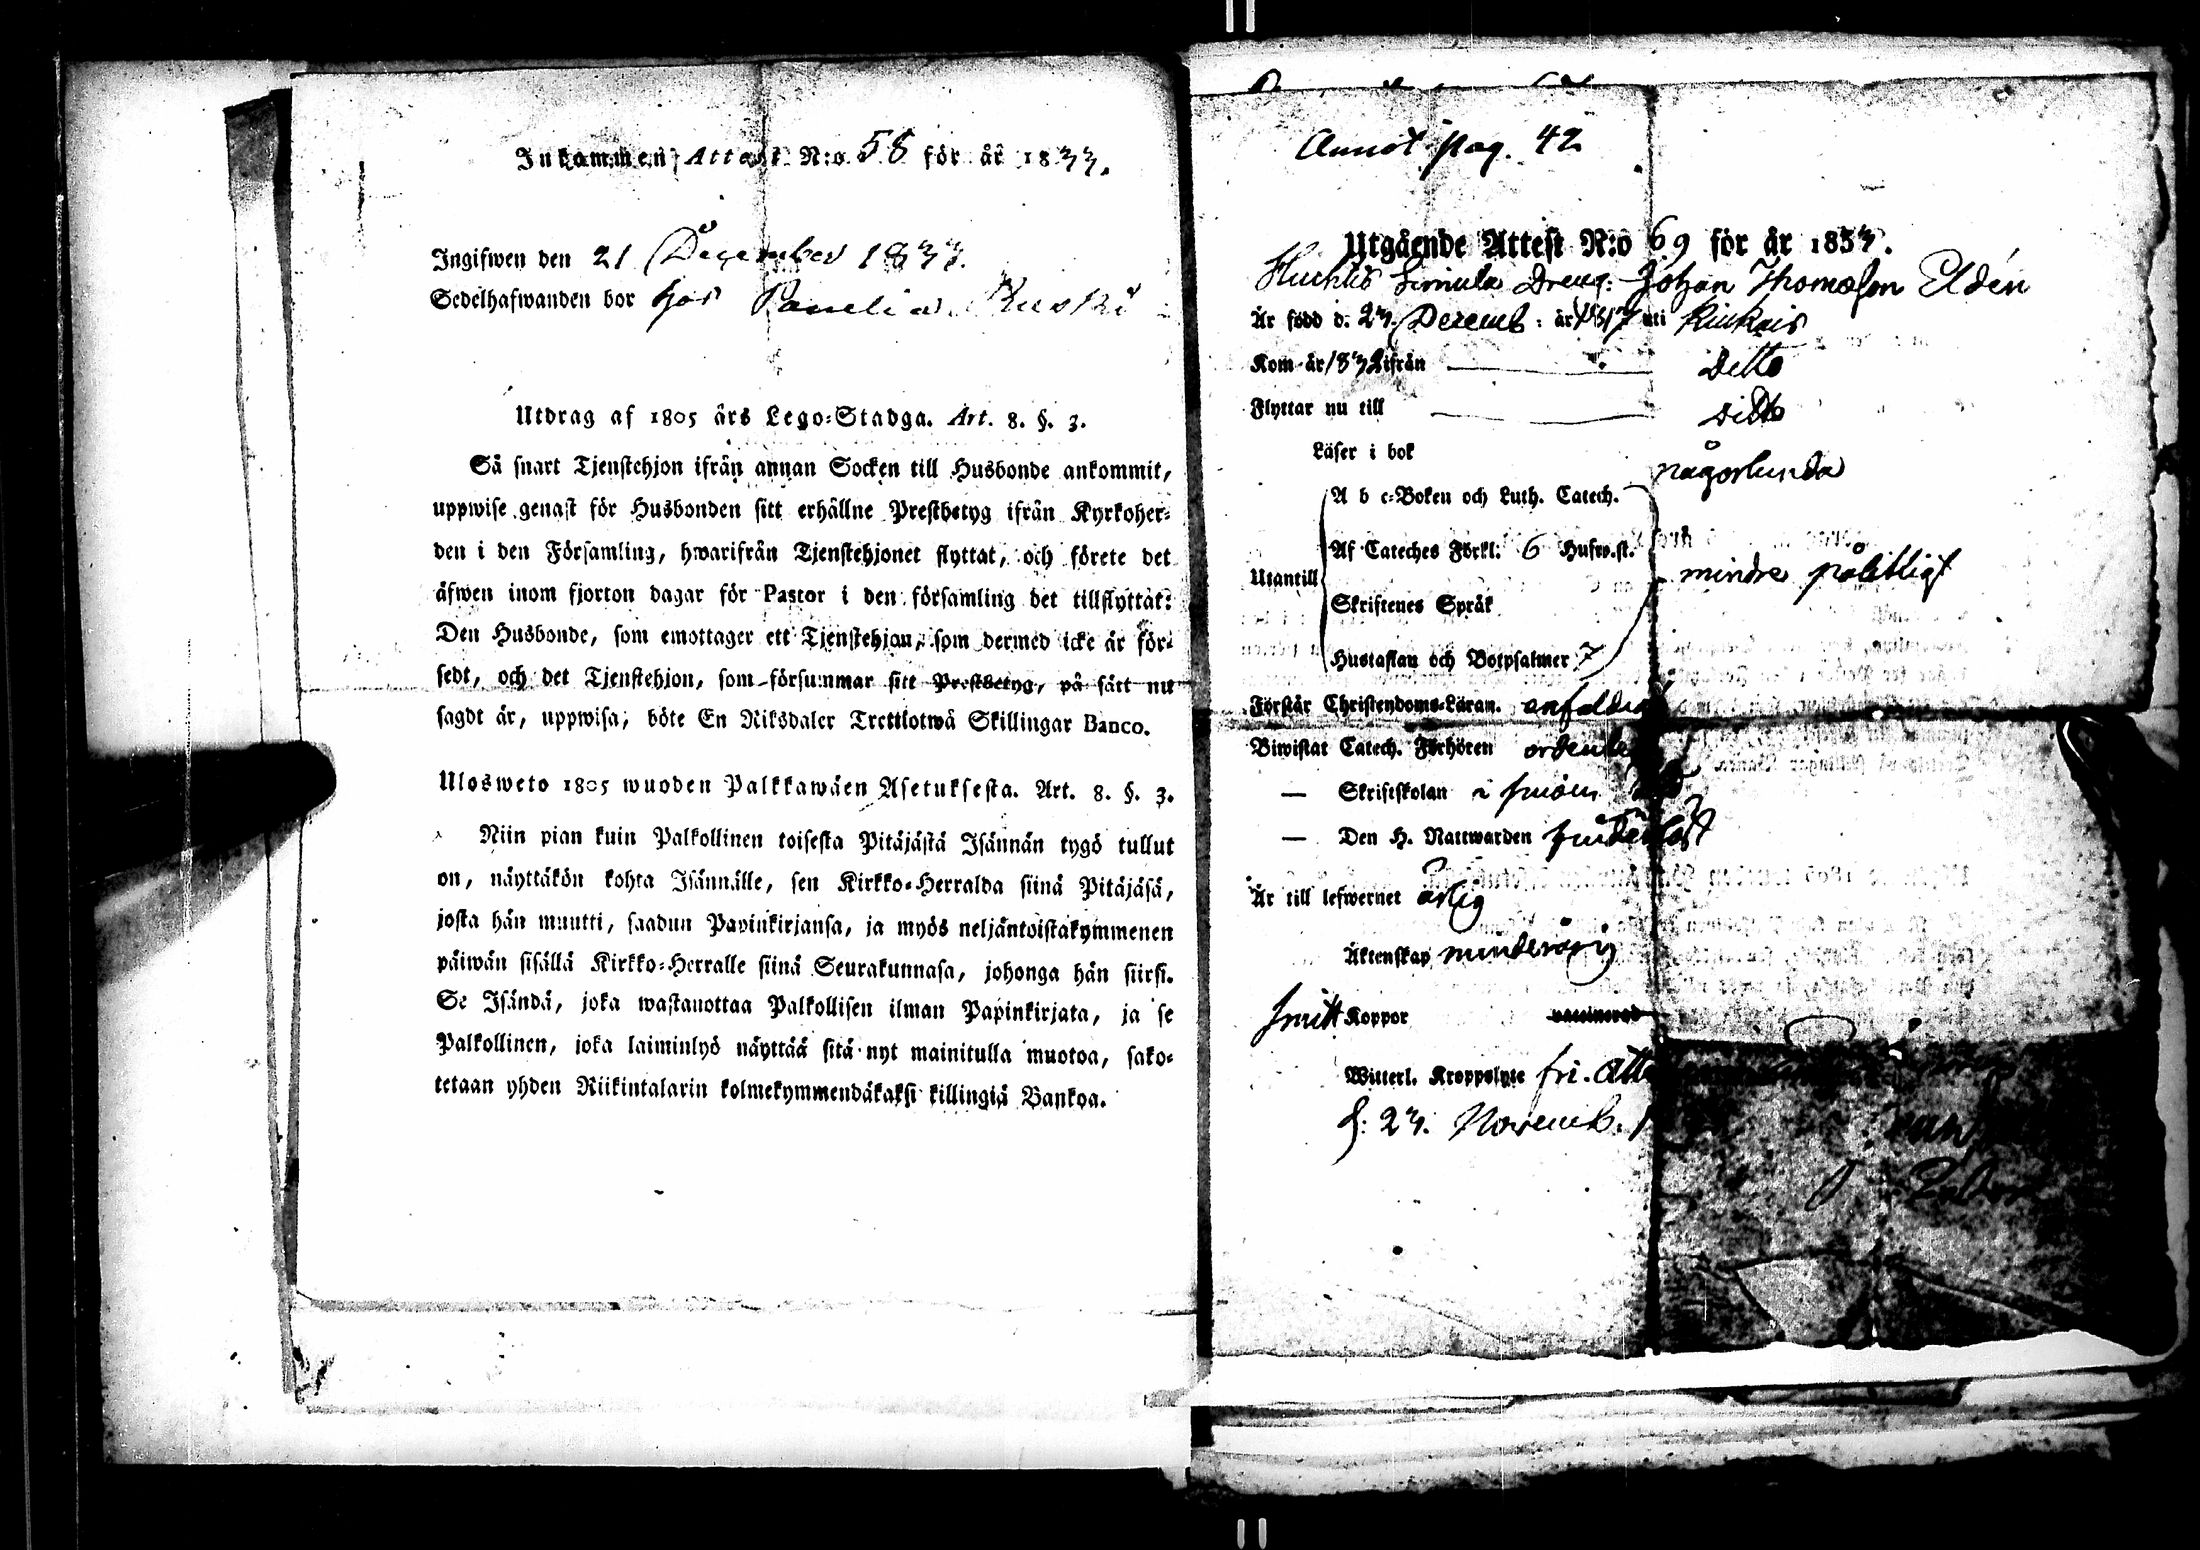 Inkommen Attest N:o 58 för år 1833.
Ingifwen den 21 December 1833.
Sedelhafwanden bor hos Panelia Ruski
Utdrag af 1805 års Lego-Stadga. Art. 8. §. 3.
Så snart Tjenstehjon ifrån annan Socken till Husbonde ankommit,
uppwise genast för Husbonden sitt erhållne Prestbetyg ifrån Kyrkoher-
den i den Församling, hwarifrån Tjenstehjonet flyttat, och förete det
äfwen inom fjorton dagar för Pastor i den församling det tillflyttat:
Den Husbonde, som emottager ett Tjenstehjon, som dermed icke är för-
sedt, och det Tjenstehjon, som försummar sitt Prestbetyg, på sätt nu
sagdt är, uppwisa, böte En Riksdaler Trettiotwå Skillingar Banco.
Ulosweto 1805 wuoden Palkkawäen Asetuksesta. Art. 8. §. 3.
Niin pian kuin Palkollinen toisesta Pitäjästä Isännän tygö tullut
on, näyttäkön kohta Isännälle, sen Kirkko-Herralda siinä Pitäjäsä,
josta hän muutti, saadun Papinkirjansa, ja myös neljäntoistakymmenen
päiwän sisällä Kirkko-Herralle siinä Seurakunnasa, johonga hän siirsi.
Se Isändä, joka wastanottaa Palkollisen ilman Papinkirjata, ja se
Palkollinen, joka laiminlyö näyttää sitä nyt mainitulla muotoa, sako-
tetaan yhden Riikintalarin kolmekymmendäkaksi killingiä Bankoa.
Annot pag. 42
Utgående Attest N:o 69 för år 1833.
Dreng: Johan Thomasson Eldén
Är född d. 23 Decemb: år 1817 uti Kiukais
Kom år 1832 ifrån Ditto
Flyttar nu till Ditto
Läser i bok någorlunda
A b c-Boken och Luth. Catech.
Af Cateches Förkl: 6 Hufw.st.
Utantill mindre pålitligt
Skriftenes Språk
Hustaflan och Botpsalmer 7
Förstår Christendoms-Läran. enfaldigt
Biwistat Catech. Förhören ordentel
— Skriftskolan i
— Den H. Nattwarden
Är till lefwernet ärlig
Äktenskap minderårig
haft Koppor vaccinerad
Witterl. Kroppslyte fri. Atte
d: 23. Novemb. 1